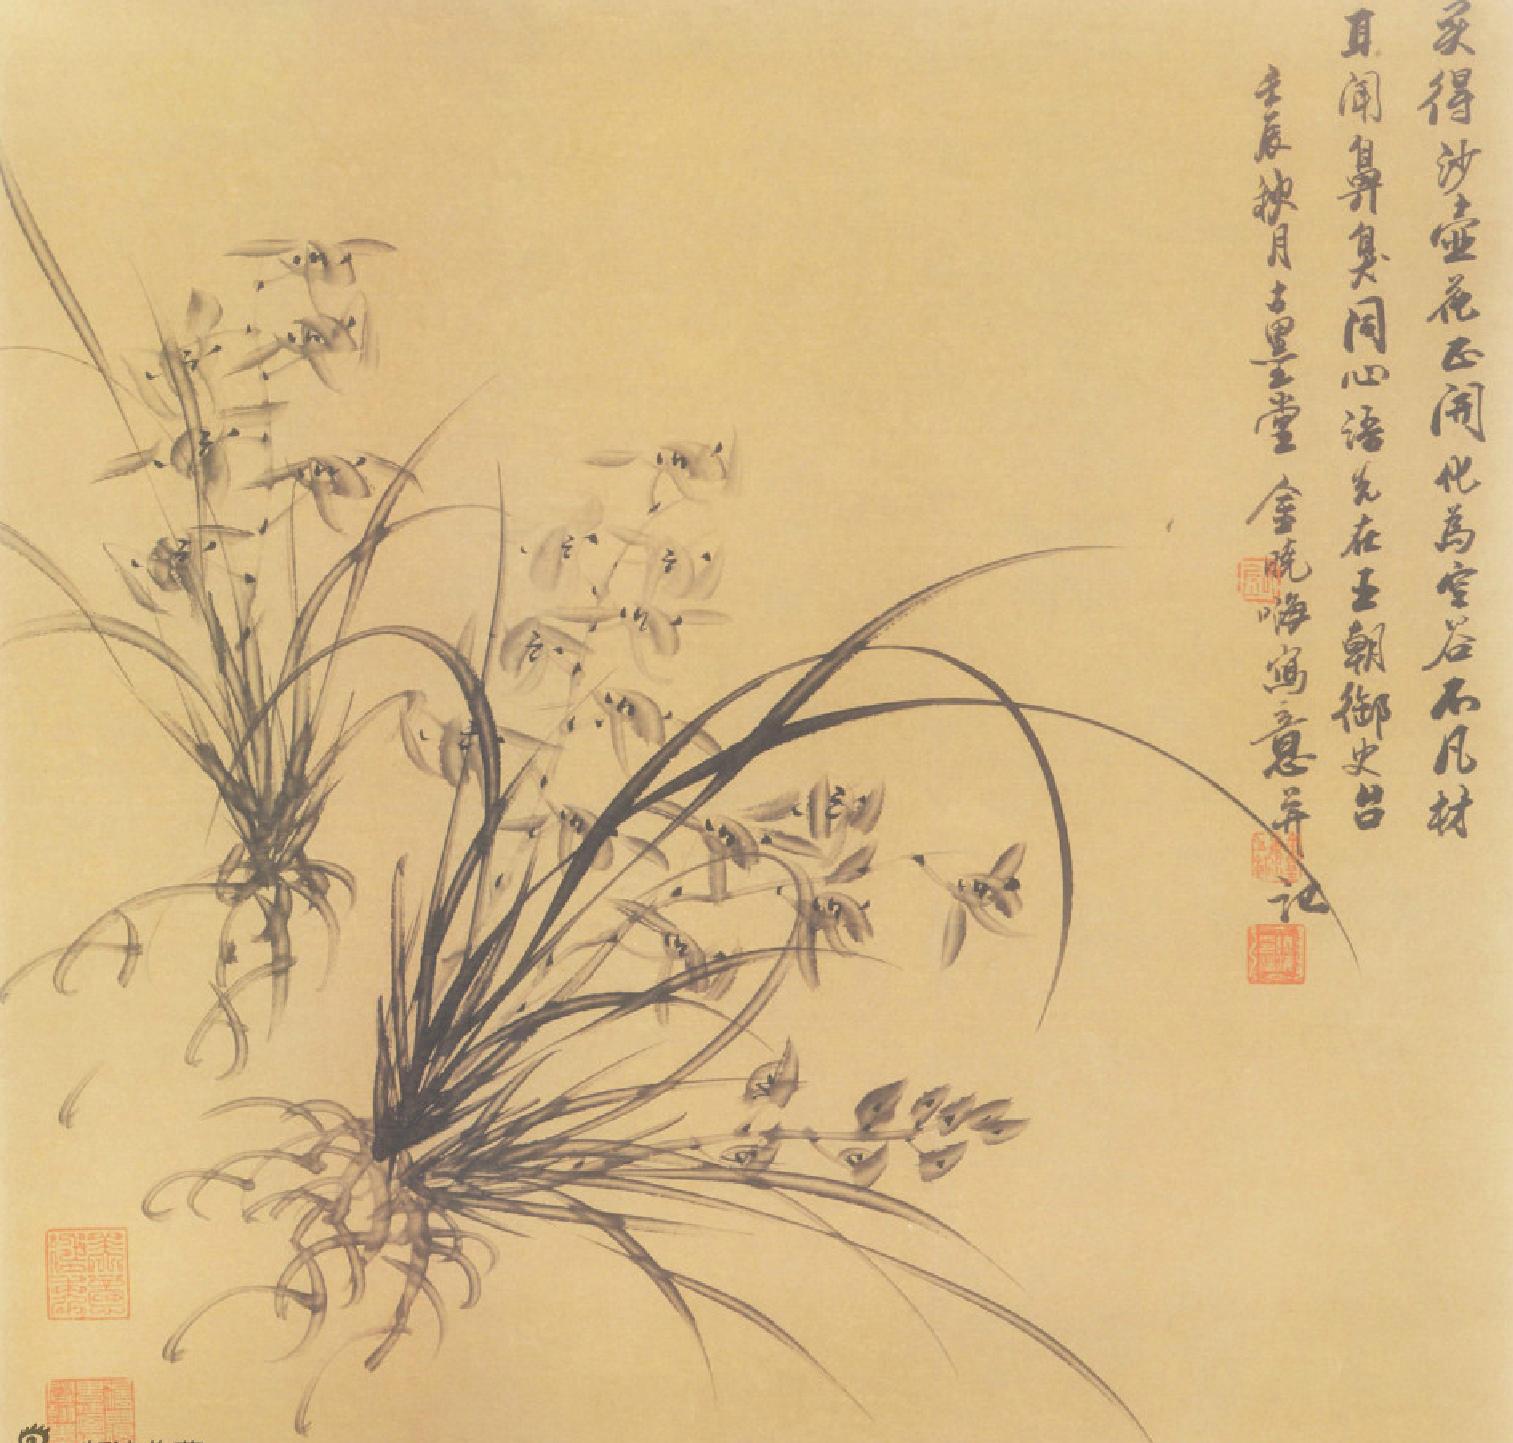 采得沙壶花正开化為空谷不凡材
耳闻鼻臭同心语先在王朝御史台
壬辰秋月古墨堂金晓海写意并记